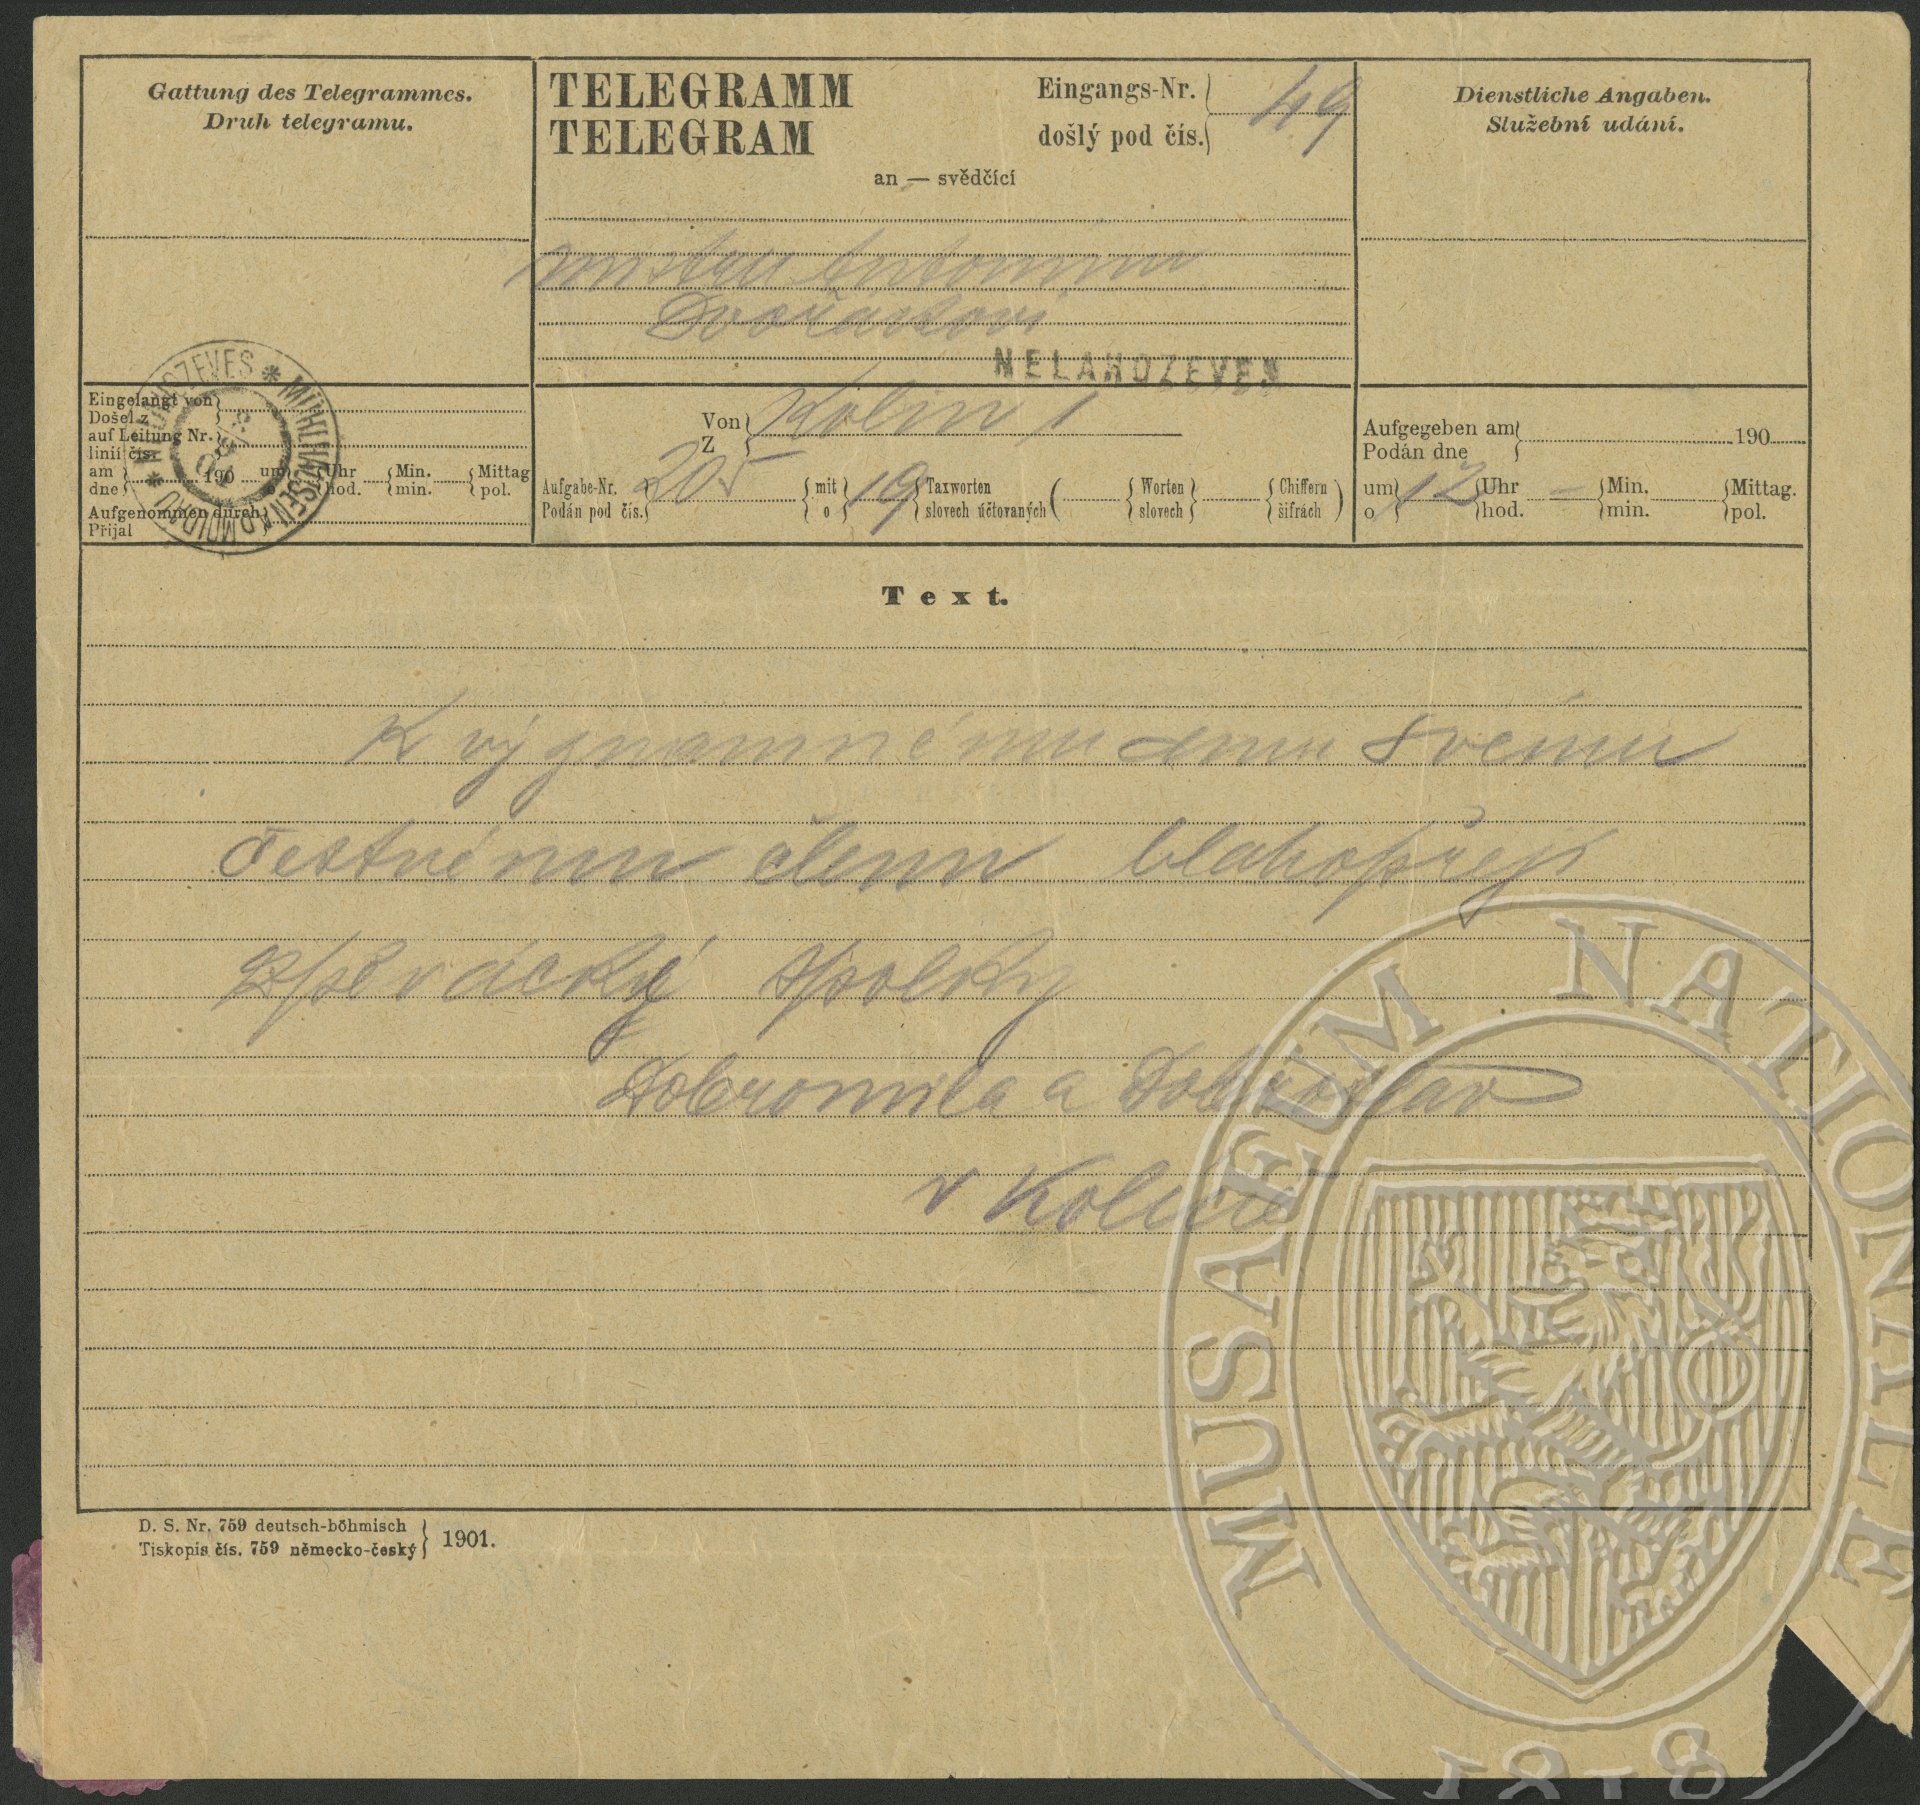 Gattung des Telegrammes.
Druh telegramu.
TELEGRAMM
TELEGRAM
Eingangs-Nr.
došlý pod čís.
49
an — svědčící
Dienstliche Angaben.
Služební udání.
mistru Antonínu
Dvořákovi
NELAHOZEVES
Eingelangt von
Došel z
auf Leitung Nr.
linií čís.
am 190 um Uhr Min. Mittag
dne o hod. min. pol.
Aufgenommen durch
Přijal
NELAHOZEVES * MÜHLHAUSEN A.D. MOLDAU *
Von
Z
Kolín 1
Aufgabe-Nr.
Podán pod čís.
205
mit
o
19
Taxworten
slovech účtovaných
Worten
slovech
Chiffern
šifrách
Aufgegeben am 190
Podán dne
um 12 Uhr — Min. Mittag.
o hod. min. pol.
Text.
K významnému dnu svému
čestnému členu blahopřejí
zpěvácké spolky
Dobromila a Dobroslav
v Kolíně
D. S. Nr. 759 deutsch-böhmisch
Tiskopis čís. 759 německo-český
1901.
MUSAEUM NATIONALE
1818